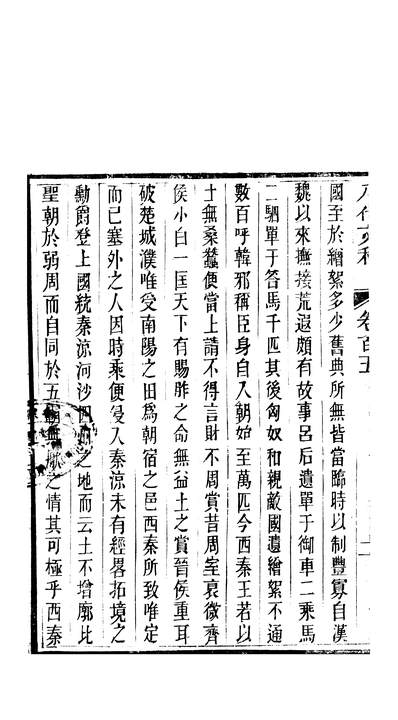 八代文粹 卷百五
國至於繒絮多少舊典所無皆當臨時以制豐寡自漢
魏以來撫接荒遐頗有故事呂后遺單于御車二乘馬
二駟單于答馬千匹其後匈奴和親敵國遺繒絮不通
數百呼韓邪稱臣身自入朝始至萬匹今西秦王若以
土無桑蠶便當上請不得言財不周賞昔周室衰微齊
侯小白一匡天下有賜胙之命無益土之賞晉侯重耳
破楚城濮唯受南陽之田爲朝宿之邑西秦所致唯定
而已塞外之人因時乘便侵入秦涼未有經畧拓境之
勳爵登上國統秦涼河沙四州之地而云土不增廓比
聖朝於弱周而自同於五霸無厭之情其可極乎西秦